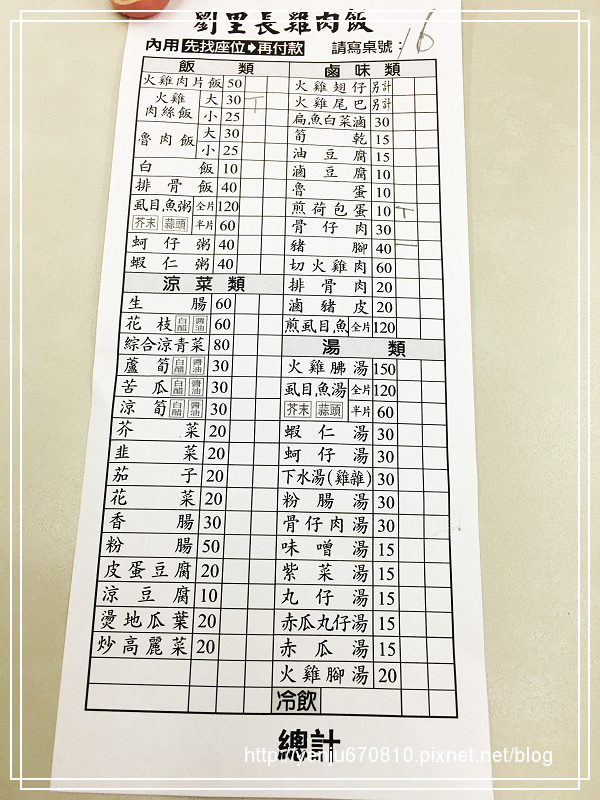 劉里長雞肉飯
內用 先找座位➡再付款 請寫桌號: 16
飯類
火雞肉片飯 50
火雞肉絲飯 大 30 T
小 25
魯肉飯 大 30
小 25
白飯 10
排骨飯 40
虱目魚粥 全片 120
芥末 蒜頭 半片 60
蚵仔粥 40
蝦仁粥 40
涼菜類
生腸 60
花枝 白醋 醬油 60
綜合涼青菜 80
蘆筍 白醋 醬油 30
苦瓜 白醋 醬油 30
涼筍 白醋 醬油 30
芥菜 20
韭菜 20
茄子 20
花菜 20
香腸 30
粉腸 50
皮蛋豆腐 20
涼豆腐 10
燙地瓜葉 20
炒高麗菜 20
滷味類
火雞翅仔 另計
火雞尾巴 另計
扁魚白菜滷 30
筍乾 15
油豆腐 15
滷豆腐 10
魯蛋 10
煎荷包蛋 10 T
骨仔肉 30
豬腳 40 一
切火雞肉 60
排骨肉 20
滷豬皮 20
煎虱目魚 全片 120
湯類
火雞胇湯 150
虱目魚湯 全片 120
芥末 蒜頭 半片 60
蝦仁湯 30
蚵仔湯 30
下水湯(雞雜) 30
粉腸湯 30
骨仔肉湯 30
味噌湯 15
紫菜湯 15
丸仔湯 15
赤瓜丸仔湯 15
赤瓜湯 15
火雞腳湯 20
冷飲
總計
http://yenju670810.pixnet.net/blog